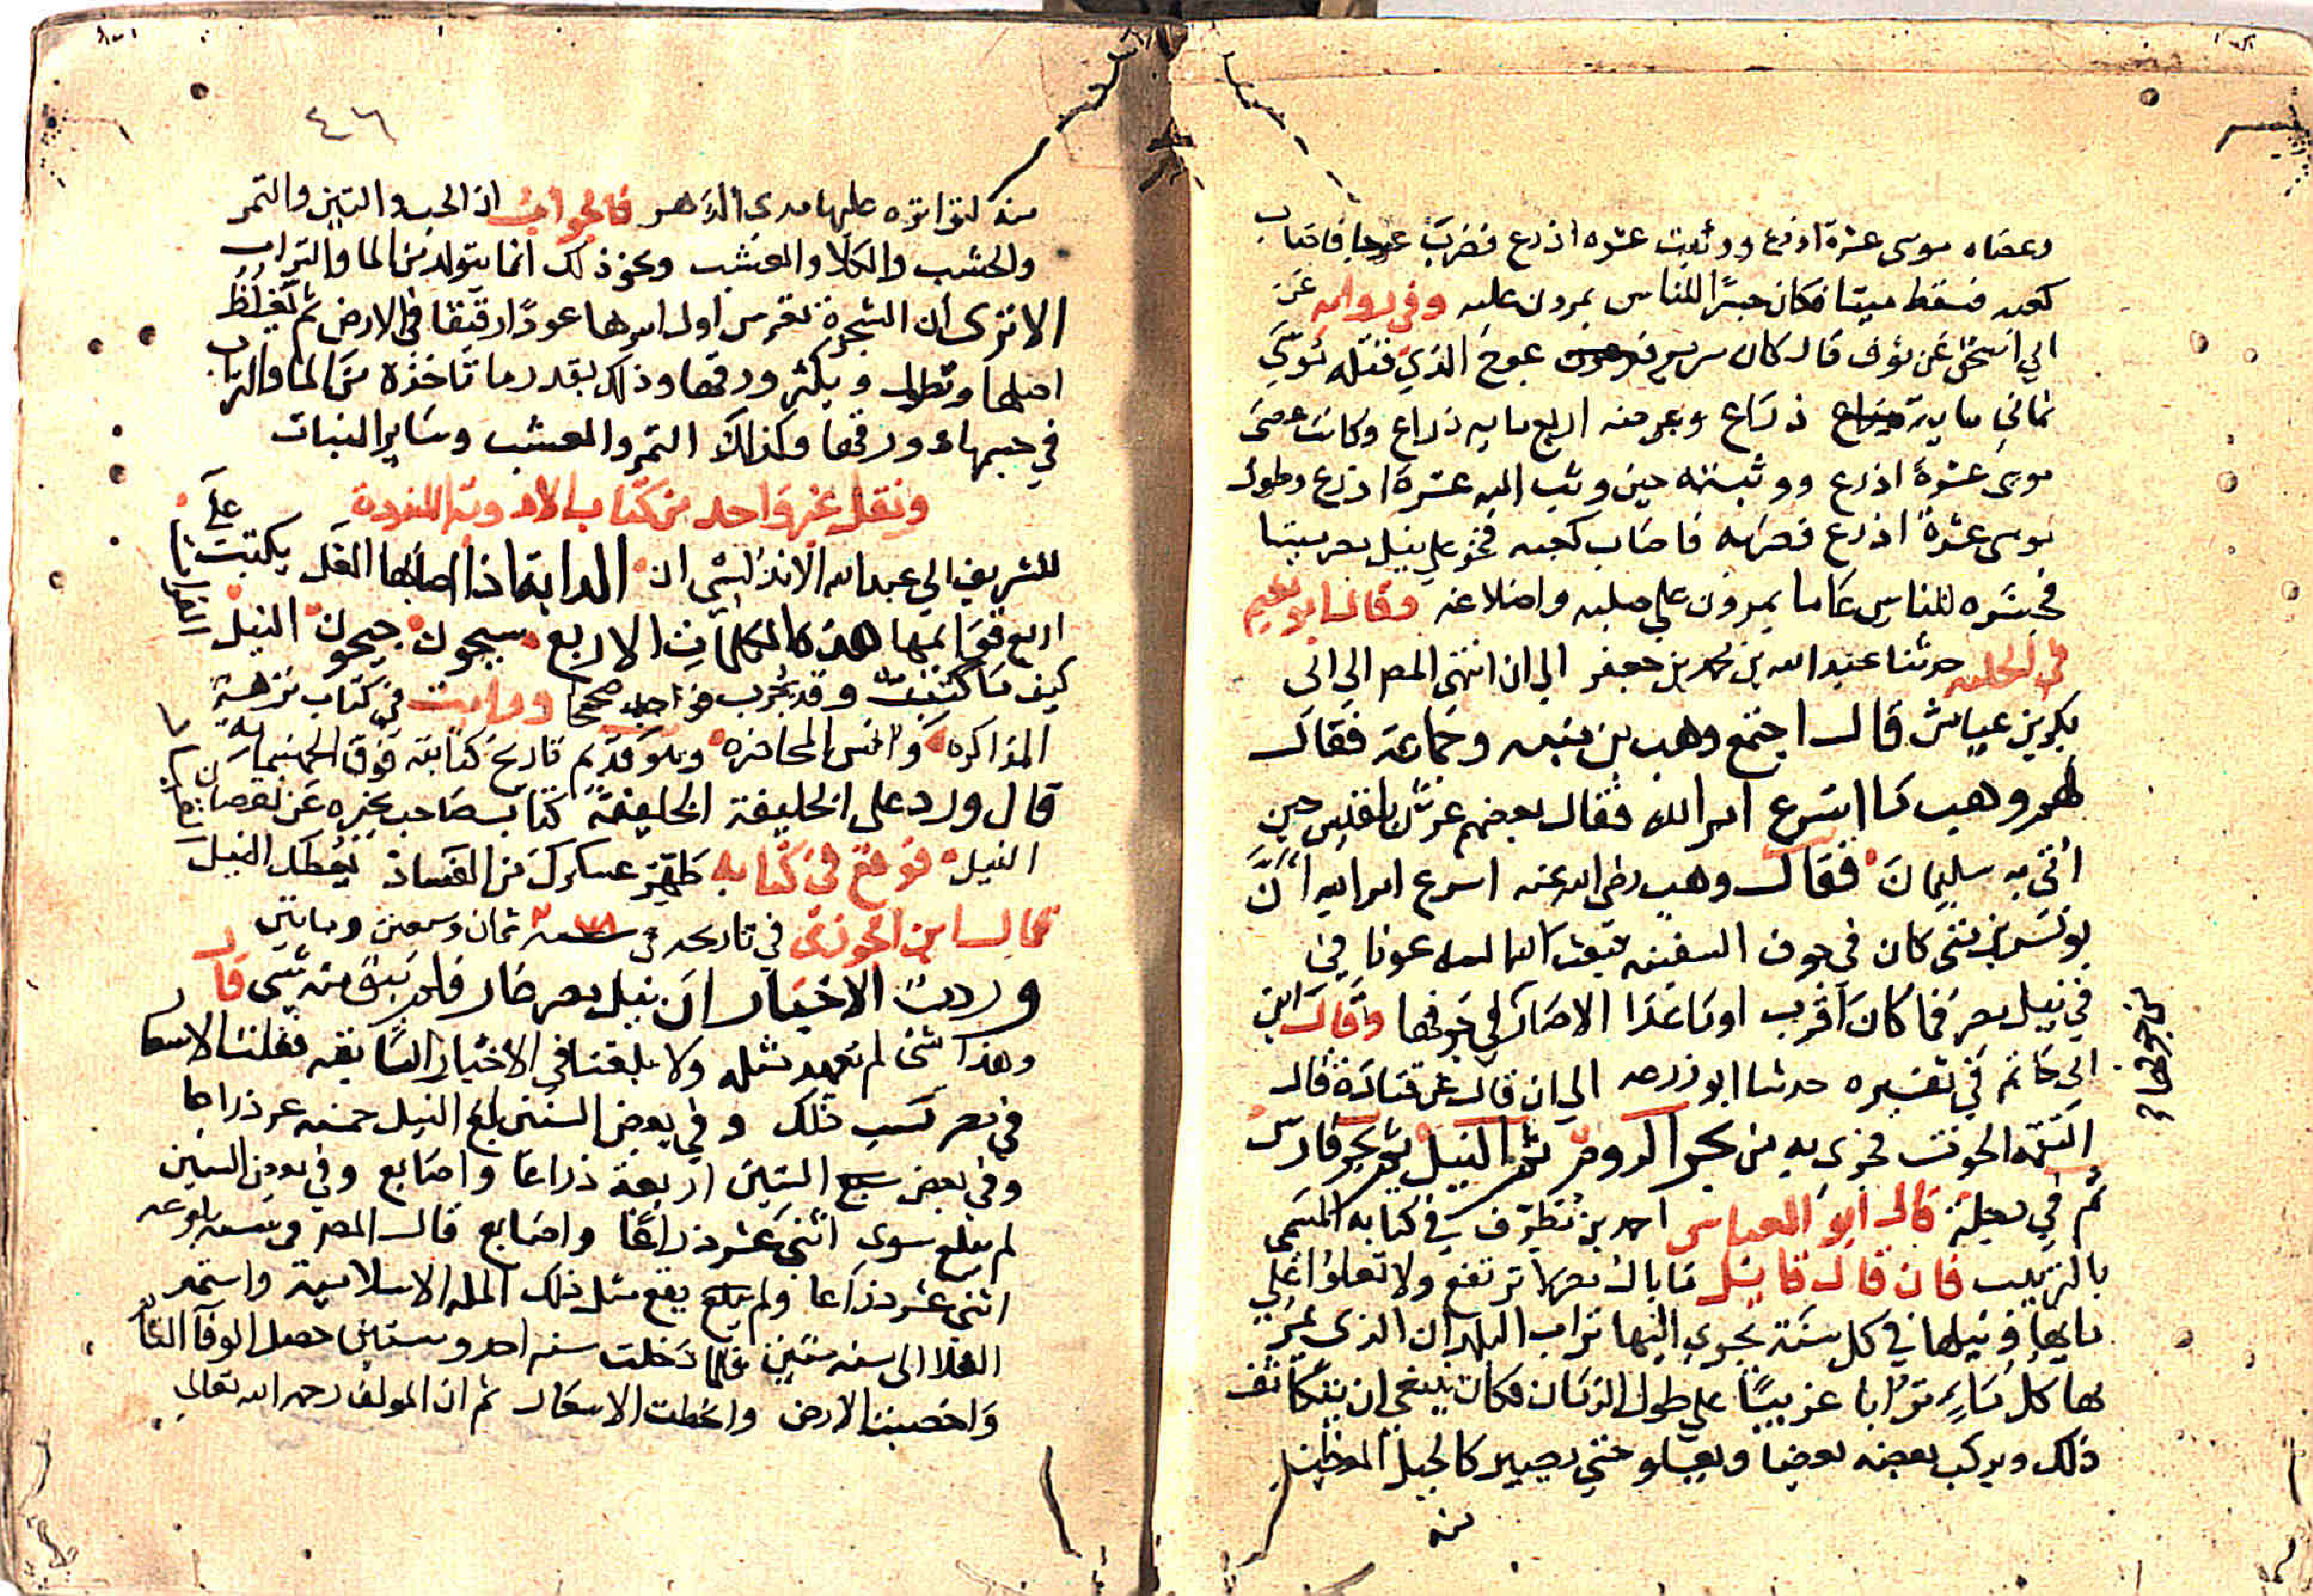 وعصاه موسى عشرة اذرع ووثبت عشره اذرع فضرب عوجا فاصاب
كعبه فسقط ميتا فكان جسرا للناس يمرون عليه وفي رواية عن
ابي اسحق عن نوف قال كان سرير عوج الذي قتله موسى
ثماني ماية ذراع وعرضه اربع مايه ذراع وكانت عصى
موسى عشرة اذرع ووثبته حين وثب اليه عشرة اذرع وطول
موسى عشرة اذرع فضربه فاصاب كعبه فخر على نيل مصر ميتا
فجسره للناس عاما يمرون على صلبه واضلاعه وقال ابو نعيم
في الحليه حدثنا عبد الله بن محمد بن جعفر الى ان انتهى الى ابي
بكر بن عياش قال اجتمع وهب بن منبه وجماعة فقال
لهم وهب ما اسرع امر الله فقال بعضهم عرش بلقيس حين
اتى به سليمان فقال وهب رضي الله عنه اسرع امر الله ان
يونس بن متى كان في جوف السفينه فبعث الله اليه حوتا في
في نيل مصر فما كان اقرب اوما غدا الا صار في جوفها وقال ابن
ابي حاتم في تفسيره حدثنا ابو زرعه الى ان قال عن قتادة قال
التقمه الحوت فجرى به من بحر الروم ثم النيل ثم بحر فارس
ثم في دجلة قال ابو العباس احمد بن مطرف في كتابه المسمى
بالترتيب فان قال قايل ما بال مصر لا ترتفع ولا تعلوا على
مايها ونيلها في كل سنة يجري اليها تراب البلدان الذي يمر
بها كل تراباً غريبًا على طول الزمان فكان ينبغي ان يتكاثف
ذلك ويركب بعضه بعضا ويعلو حتى يصير كالجبل العظيم
منه
٤٦
منه لتواتره عليها مدى الدهر فالجواب ان الحب والتين والتمر
والخشب والكلا والعشب ونحو ذلك انما يتولد من الما والتراب
الا ترى ان الشجرة تغرس اول امرها عودًا رقيقا في الارض ثم يغلظ
اصلها وتطول ويكثر ورقها وذلك بقدر ما تاخذه من الما والتراب
في جسمها وورقها وكذلك التمر والعشب وساير النبات
ونقل غير واحد من كتاب الادوية المفردة
للشريف ابي عبد الله الاندلسي ان الدابة اذا اصابها النمل يكتب على
اربع قوايمها هذه الكلمات الاربع سيحون جيحون النيل
كيف ما كتبت وقد جرب فوجد صحيحا ورايت في كتاب نزهة
المذاكره وانس المحاضره وهو قديم تاريخ كتابته فوق الخمسماية
قال ورد على الخليفة كتاب صاحب يخبره عن نقصان
النيل فوقع في كتابه طهر عسكرك من الفساد يعطك النيل
قال ابن الجوزي في تاريخه في سنة ٢٧٨ ثمان وسبعين ومايتين
وردت الاخبار ان نيل مصر غار فلم يبق منه شي قال
وهذا شي لم نعهد مثله ولا بلغنا في الاخبار السابقه فغلت الاسعار
في مصر بسبب ذلك وفي بعض السنين بلغ النيل خمسة عشر ذراعا
وفي بعض السنين اربعة ذراعا واصابع وفي بعض السنين
لم يبلغ سوى اثنى عشر ذراعًا واصابع قال
اثنى عشر ذراعا ولم يقع مثل ذلك المله الاسلامية واستمر
الغلا الى سنه ستين فلما دخلت سنه احد وستين حصل الوفا
واخصبت الارض وانحطت الاسعار ثم ان المولف رحمه الله تعالى